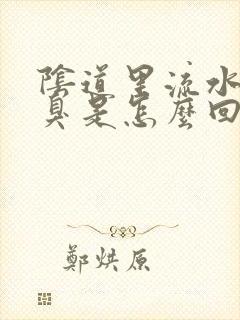 陰道里流水
臭是怎麼回
鄭烘原